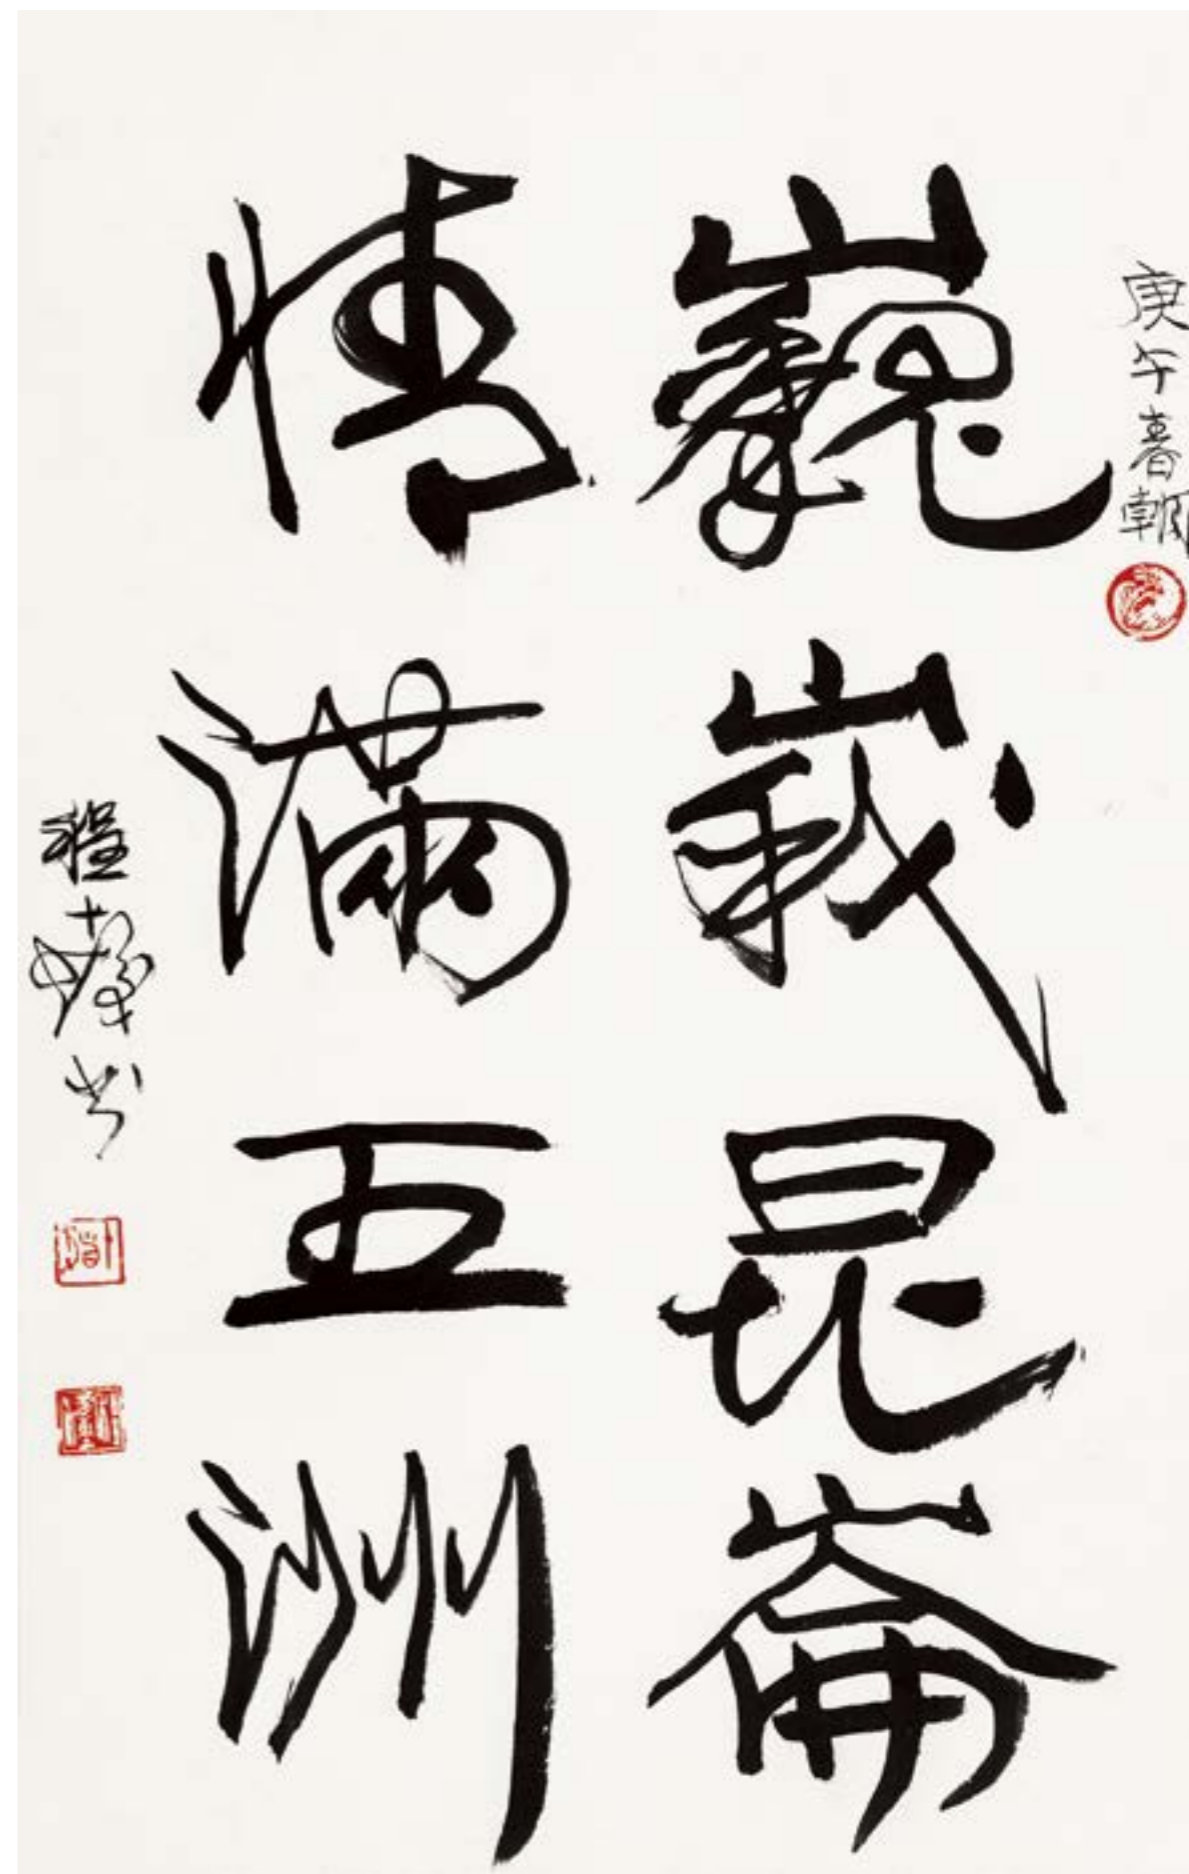 庚午春朝
巍峩昆崙
情滿五洲
程十髮书